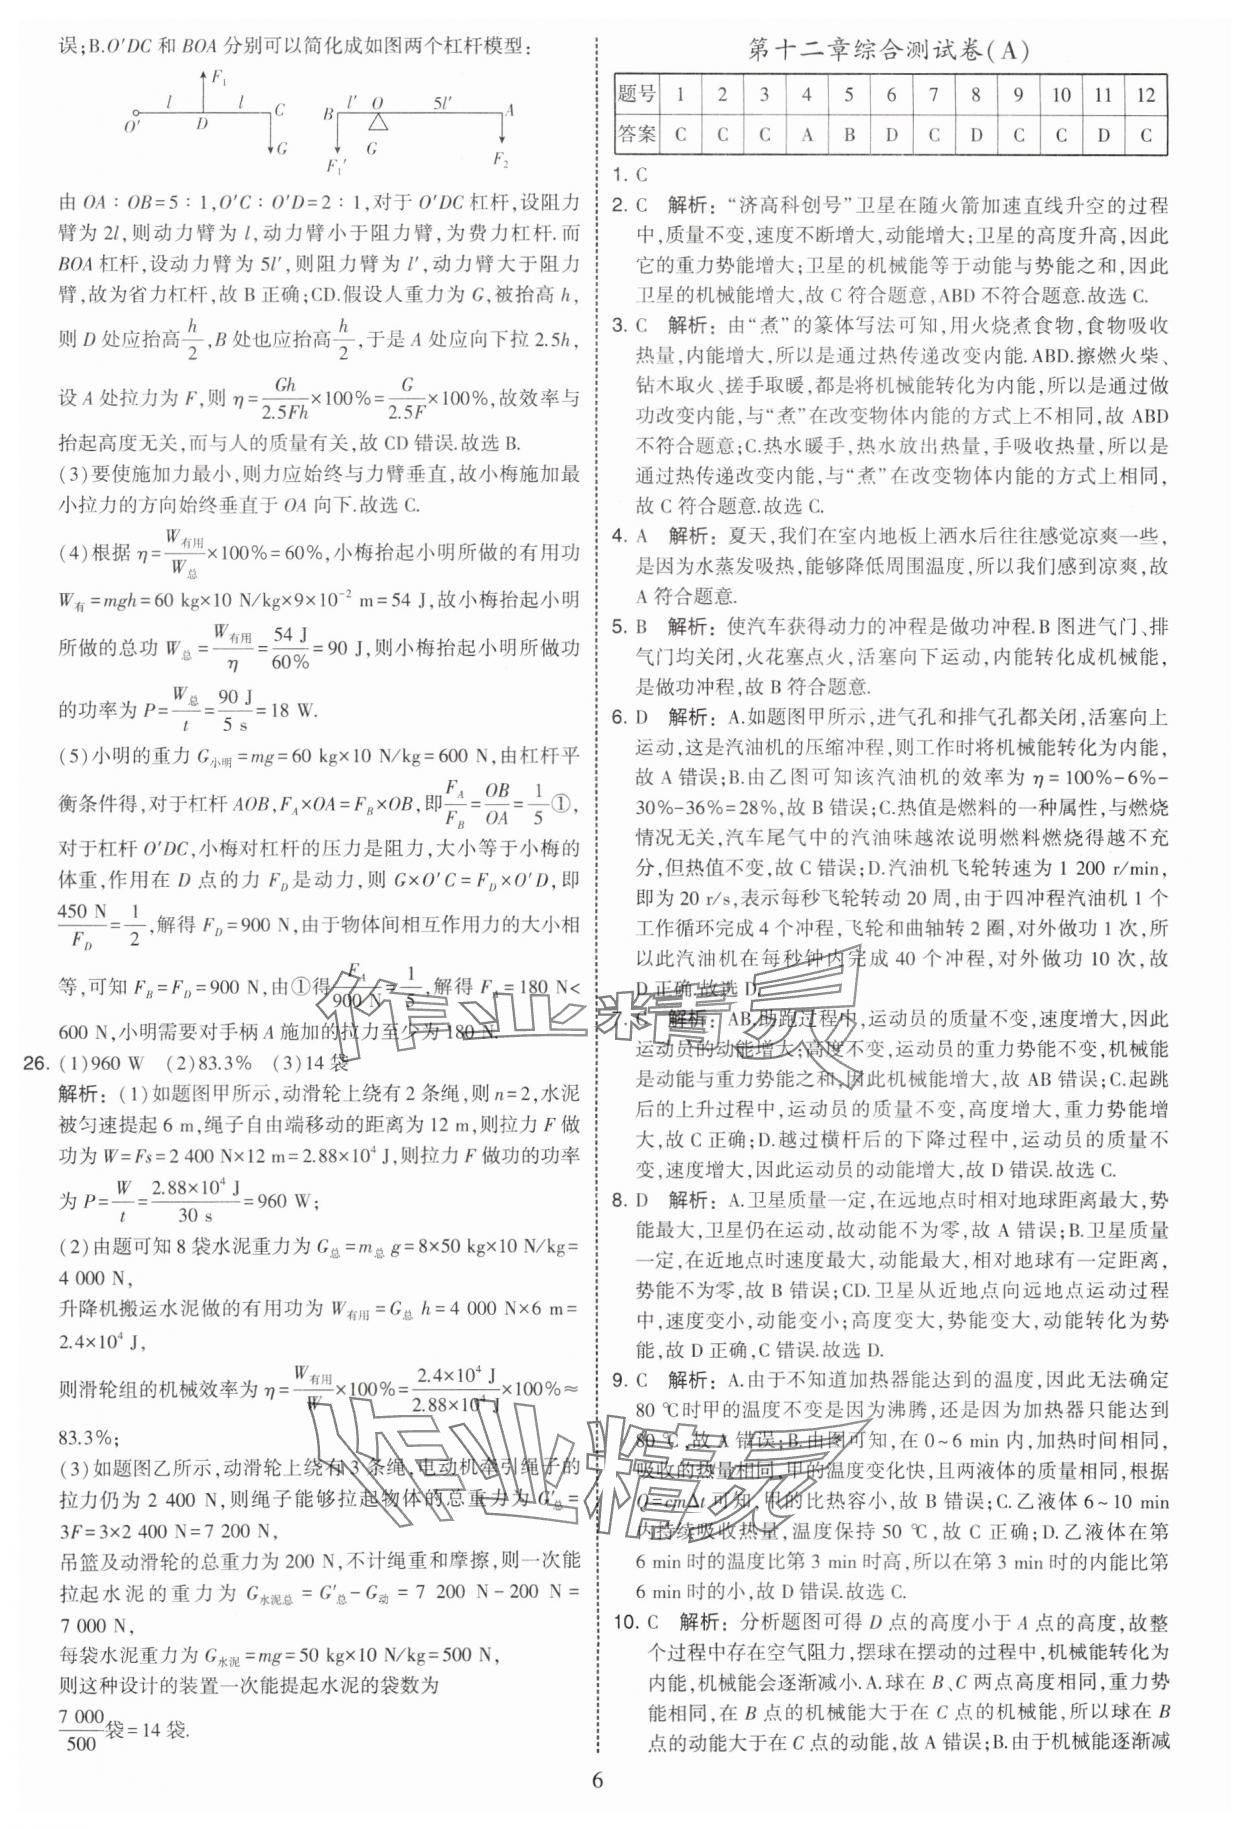 误;B.O′DC 和 BOA 分别可以简化成如图两个杠杆模型:
F₁ l l O′ D C G
l′ O 5l′ B A G F₁′ F₂
由 OA∶OB=5∶1,O′C∶O′D=2∶1,对于 O′DC 杠杆,设阻力
臂为 2l,则动力臂为 l,动力臂小于阻力臂,为费力杠杆.而
BOA 杠杆,设动力臂为 5l′,则阻力臂为 l′,动力臂大于阻力
臂,故为省力杠杆,故 B 正确;CD.假设人重力为 G,被抬高 h,
则 D 处应抬高h/2,B 处也应抬高h/2,于是 A 处应向下拉 2.5h,
设 A 处拉力为 F,则 η=Gh/2.5Fh×100%=G/2.5F×100%,故效率与
抬起高度无关,而与人的质量有关,故 CD 错误.故选 B.
(3)要使施加力最小,则力应始终与力臂垂直,故小梅施加最
小拉力的方向始终垂直于 OA 向下.故选 C.
(4)根据 η=W有用/W总×100%=60%,小梅抬起小明所做的有用功
W有=mgh=60 kg×10 N/kg×9×10⁻² m=54 J,故小梅抬起小明
所做的总功 W总=W有用/η=54 J/60%=90 J,则小梅抬起小明所做功
的功率为 P=W总/t=90 J/5 s=18 W.
(5)小明的重力 G小明=mg=60 kg×10 N/kg=600 N,由杠杆平
衡条件得,对于杠杆 AOB,F_A×OA=F_B×OB,即F_A/F_B=OB/OA=1/5①,
对于杠杆 O′DC,小梅对杠杆的压力是阻力,大小等于小梅的
体重,作用在 D 点的力 F_D是动力,则 G×O′C=F_D×O′D,即
450 N/F_D=1/2,解得 F_D=900 N,由于物体间相互作用力的大小相
等,可知 F_B=F_D=900 N,由①得F_A/900 N=1/5,解得 F_A=180 N<
600 N,小明需要对手柄 A 施加的拉力至少为 180 N.
26. (1)960 W (2)83.3% (3)14 袋
解析:(1)如题图甲所示,动滑轮上绕有 2 条绳,则 n=2,水泥
被匀速提起 6 m,绳子自由端移动的距离为 12 m,则拉力 F 做
功为 W=Fs=2 400 N×12 m=2.88×10⁴ J,则拉力 F 做功的功率
为 P=W/t=2.88×10⁴ J/30 s=960 W;
(2)由题可知 8 袋水泥重力为 G总=m总 g=8×50 kg×10 N/kg=
4 000 N,
升降机搬运水泥做的有用功为 W有用=G总 h=4 000 N×6 m=
2.4×10⁴ J,
则滑轮组的机械效率为 η=W有用/W×100%=2.4×10⁴ J/2.88×10⁴ J×100%≈
83.3%;
(3)如题图乙所示,动滑轮上绕有 3 条绳,电动机牵引绳子的
拉力仍为 2 400 N,则绳子能够拉起物体的总重力为 G′总=
3F=3×2 400 N=7 200 N,
吊篮及动滑轮的总重力为 200 N,不计绳重和摩擦,则一次能
拉起水泥的重力为 G水泥总=G′总-G动=7 200 N-200 N=
7 000 N,
每袋水泥重力为 G水泥=mg=50 kg×10 N/kg=500 N,
则这种设计的装置一次能提起水泥的袋数为
7 000/500袋=14 袋.
第十二章综合测试卷(A)
题号 1 2 3 4 5 6 7 8 9 10 11 12
答案 C C C A B D C D C C D C
1. C
2. C 解析:“济高科创号”卫星在随火箭加速直线升空的过程
中,质量不变,速度不断增大,动能增大;卫星的高度升高,因此
它的重力势能增大;卫星的机械能等于动能与势能之和,因此
卫星的机械能增大,故 C 符合题意,ABD 不符合题意.故选 C.
3. C 解析:由“煮”的篆体写法可知,用火烧煮食物,食物吸收
热量,内能增大,所以是通过热传递改变内能.ABD.擦燃火柴、
钻木取火、搓手取暖,都是将机械能转化为内能,所以是通过做
功改变内能,与“煮”在改变物体内能的方式上不相同,故 ABD
不符合题意;C.热水暖手,热水放出热量,手吸收热量,所以是
通过热传递改变内能,与“煮”在改变物体内能的方式上相同,
故 C 符合题意.故选 C.
4. A 解析:夏天,我们在室内地板上洒水后往往感觉凉爽一些,
是因为水蒸发吸热,能够降低周围温度,所以我们感到凉爽,故
A 符合题意.
5. B 解析:使汽车获得动力的冲程是做功冲程.B 图进气门、排
气门均关闭,火花塞点火,活塞向下运动,内能转化成机械能,
是做功冲程,故 B 符合题意.
6. D 解析:A.如题图甲所示,进气孔和排气孔都关闭,活塞向上
运动,这是汽油机的压缩冲程,则工作时将机械能转化为内能,
故 A 错误;B.由乙图可知该汽油机的效率为 η=100%-6%-
30%-36%=28%,故 B 错误;C.热值是燃料的一种属性,与燃烧
情况无关,汽车尾气中的汽油味越浓说明燃料燃烧得越不充
分,但热值不变,故 C 错误;D.汽油机飞轮转速为 1 200 r/min,
即为 20 r/s,表示每秒飞轮转动 20 周,由于四冲程汽油机 1 个
工作循环完成 4 个冲程,飞轮和曲轴转 2 圈,对外做功 1 次,所
以此汽油机在每秒钟内完成 40 个冲程,对外做功 10 次,故
D 正确.故选 D.
7. C 解析:AB.助跑过程中,运动员的质量不变,速度增大,因此
运动员的动能增大;高度不变,运动员的重力势能不变,机械能
是动能与重力势能之和,因此机械能增大,故 AB 错误;C.起跳
后的上升过程中,运动员的质量不变,高度增大,重力势能增
大,故 C 正确;D.越过横杆后的下降过程中,运动员的质量不
变,速度增大,因此运动员的动能增大,故 D 错误.故选 C.
8. D 解析:A.卫星质量一定,在远地点时相对地球距离最大,势
能最大,卫星仍在运动,故动能不为零,故 A 错误;B.卫星质量
一定,在近地点时速度最大,动能最大,相对地球有一定距离,
势能不为零,故 B 错误;CD.卫星从近地点向远地点运动过程
中,速度变小,动能变小;高度变大,势能变大,动能转化为势
能,故 D 正确,C 错误.故选 D.
9. C 解析:A.由于不知道加热器能达到的温度,因此无法确定
80 ℃时甲的温度不变是因为沸腾,还是因为加热器只能达到
80 ℃,故 A 错误;B.由图可知,在 0~6 min 内,加热时间相同,
吸收的热量相同,甲的温度变化快,且两液体的质量相同,根据
Q=cmΔt 可知,甲的比热容小,故 B 错误;C.乙液体 6~10 min
内持续吸收热量,温度保持 50 ℃,故 C 正确;D.乙液体在第
6 min 时的温度比第 3 min 时高,所以在第 3 min 时的内能比第
6 min 时的小,故 D 错误.故选 C.
10. C 解析:分析题图可得 D 点的高度小于 A 点的高度,故整
个过程中存在空气阻力,摆球在摆动的过程中,机械能转化为
内能,机械能会逐渐减小.A.球在 B、C 两点高度相同,重力势
能相同,在 B 点的机械能大于在 C 点的机械能,所以球在 B
点的动能大于在 C 点的动能,故 A 错误;B.由于机械能逐渐减
6
作业精灵
作业精灵